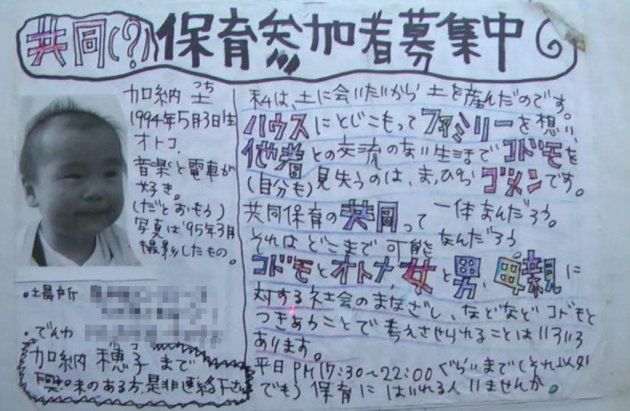 共同(?)保育参加者募集中
加納 土
つち
1994年5月3日生
オトコ。
音楽と電車が
好き。
(だとおもう)
写真は'95年3月
撮影したもの。
・場所
・でんわ
加納 穂子まで
興味のある方、是非連絡下さい
私は、土に会いたいから土を産んだのです。
ハウスにとじこもってファミリーを想い、
他者との交流のない生活でコドモを
(自分も)見失うのは、まっぴらゴメンです。
共同保育の共同って一体なんだろう。
それはどこまで可能なんだろう。
コドモとオトナ、女と男、母親に
対する社会のまなざし、などなど コドモと
つきあうことで考えさせられることはいろいろ
あります。
平日 PM17:30〜22:00ぐらいまで(それ以外
でも)保育にはいれる人いませんか。